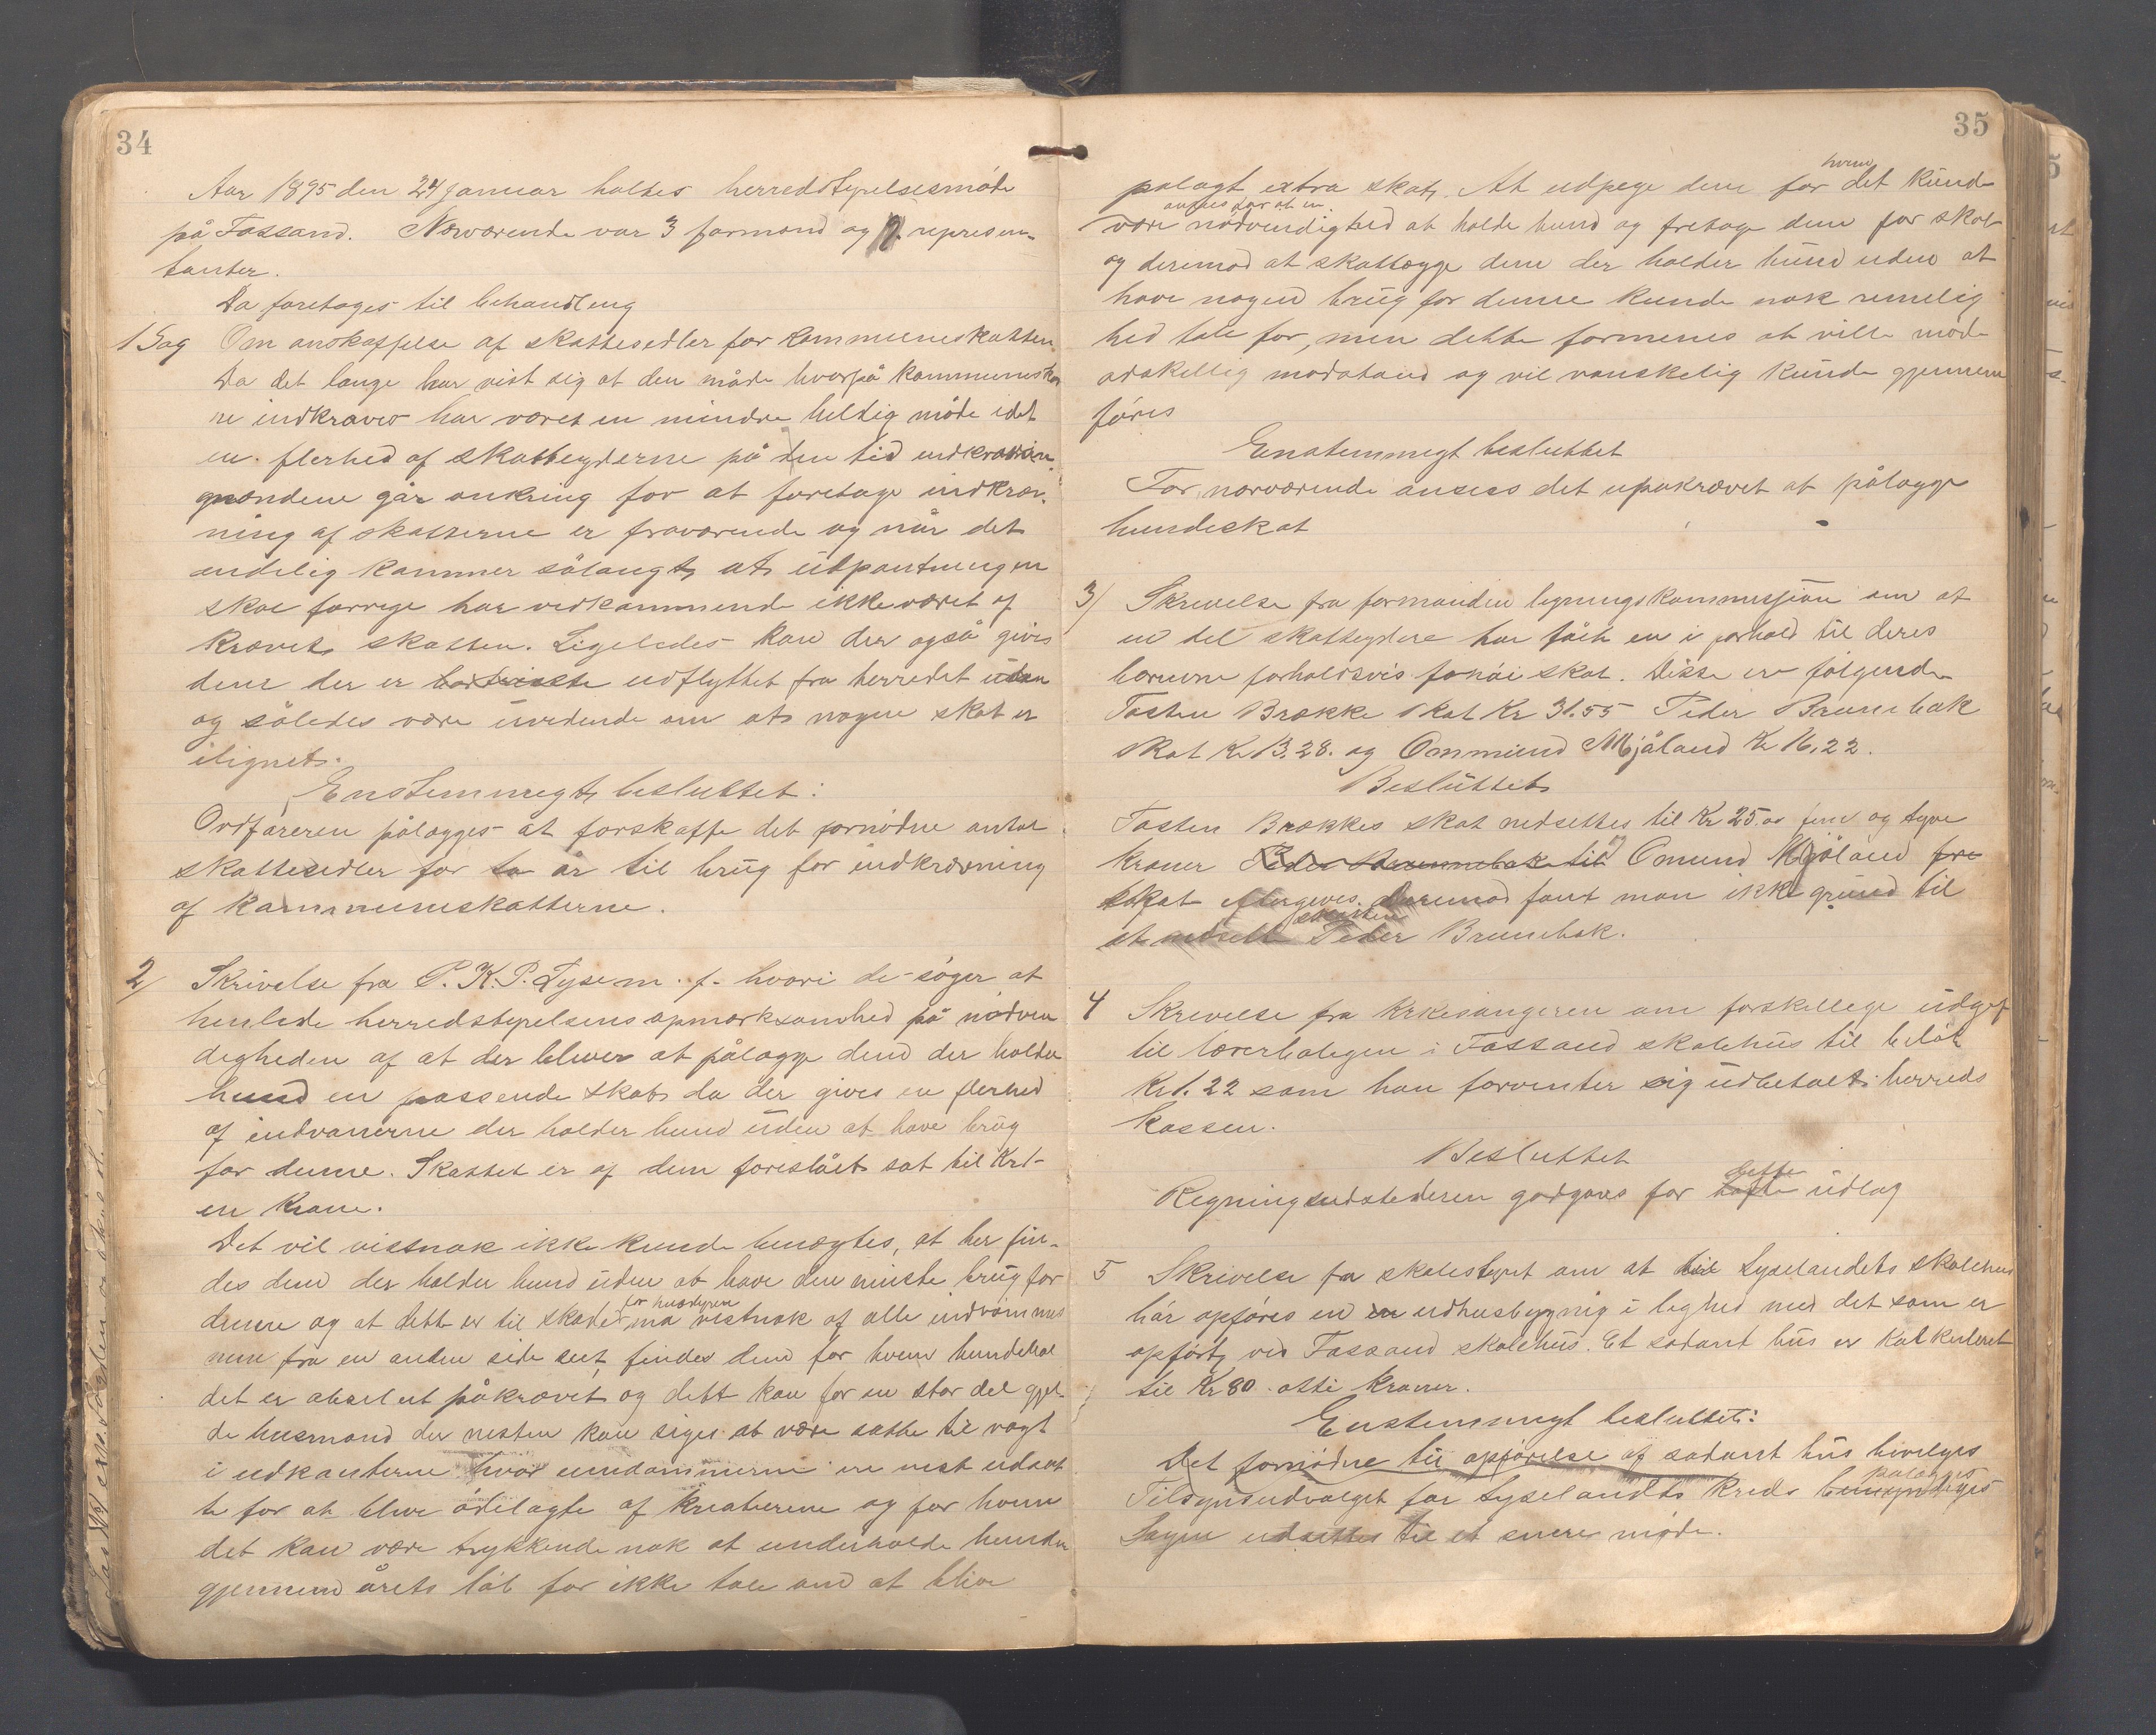 34
Aar 1895 den 24 Januar holtes herredstyrelsesmøde
på Fossand. Nærværende var 3 formænd og 9 represen-
tanter.
Da foretoges til behandling
1 Sag Om anskaffelse af skattesedler for kommuneskatten
Da det længe har vist sig at den måde hvorpå kommuneskat
ne indkræves har været en mindre heldig måde idet
en flerhed af skatteyderne på den tid indkrævnin
gmændene går omkring for at foretage indkræv-
ning af skatterne er fraværende og når det
endelig kommer sålangt at udpantningen
skal foregå har vedkommende ikke været af
krævet skatten. Ligeledes kan der også gives
dem der er udflyttet fra herredet uden
og således være uvidende om at nogen skat er
ilignet.
Enstemmegt besluttet:
Ordføreren pålægges at forskaffe det fornødne antal
skattesedler for to år til brug for indkrævning
af kommuneskatterne.
2/ Skrivelse fra P. K. P. Lyse m. f. hvori de søger at
henlede herredstyrelsens opmærksomhed på nødven
digheden af at der bliver at pålægge dem der holder
hund en passende skat da der gives en flerhed
af indvånerne der holder hund uden at have brug
for denne. Skattet er af dem foreslået sat til Kr 1-
en krone.
Det vil vistnok ikke kunde benægtes, at her fin-
des dem der holder hund uden at have den minste brug for
denne og at dette er til skade for husdyren må vistnok af alle indrømmes
men fra en anden side set findes dem for hvem hundehol
det er absolut påkrævet og dette kan for en stor del gjel-
de husmænd der næsten kan siges at være satte til vagt
i udkanterne hvor eiendommerne er mest udsat
te for at blive ødelagte af kreaturene og for hvem
det kan være trykkende nok at underholde hunden
gjennem årets løb for ikke tale om at blive
35
pålagt extra skat. At udpege dem for hvem det kunde
være anses for at en nødvendighed at holde hund og fretage dem for skat
og derimod at skattlægge dem der holder hund uden at
have nogen brug for denne kunde nok remelig
hed tale for, men dette formenes at ville møde
adskellig modstand og vil vanskelig kunde gjennem
føres
Enstemmegt besluttet
For nærværende anses det upåkrævet at pålægge
hundeskat
3/ Skrivelse fra formanden legningskommissjon om at
en del skatteydere har fået en i forhold til deres
bærevne forholdsvis for høi skat. Disse er følgende
Tosten Brække skat Kr 31.55 Peder Brunebak
skat Kr 13.28. og Ommund Mjåland Kr 16.22.
Besluttet
Tosten Brækkes skat nedsettes til Kr 25.00 fem og tyve
kroner Peder Brunnebak til Omund Mjåland fre
skat eftergives. Derimod fant man ikke grund til
at nedsett skatten Peder Brunebak.
4 Skrivelse fra Kirkesangeren om forskellege udgef
til lærerboligen i Fossand skolehus til beløb
Kr 1.22 som han forventer sig udbetalt i herreds
kassen.
Besluttet
Regningsudstederen godgøres for dette udlæg
5 Skrivelse fra skolestyret om at til Lyselandets skolehus
bår opføres en en udhusbygnig i leghed med det som er
opført ved Fossand skolehus. Et sådant hus er kalkuleret
til Kr 80. otti kroner.
Enstemmegt besluttet:
Det fornødne til opførelse af sådant hus bivilges
Tilsynsudvalget for Lyselandets kreds pålægges
Sagen udsettes til et senere møde.